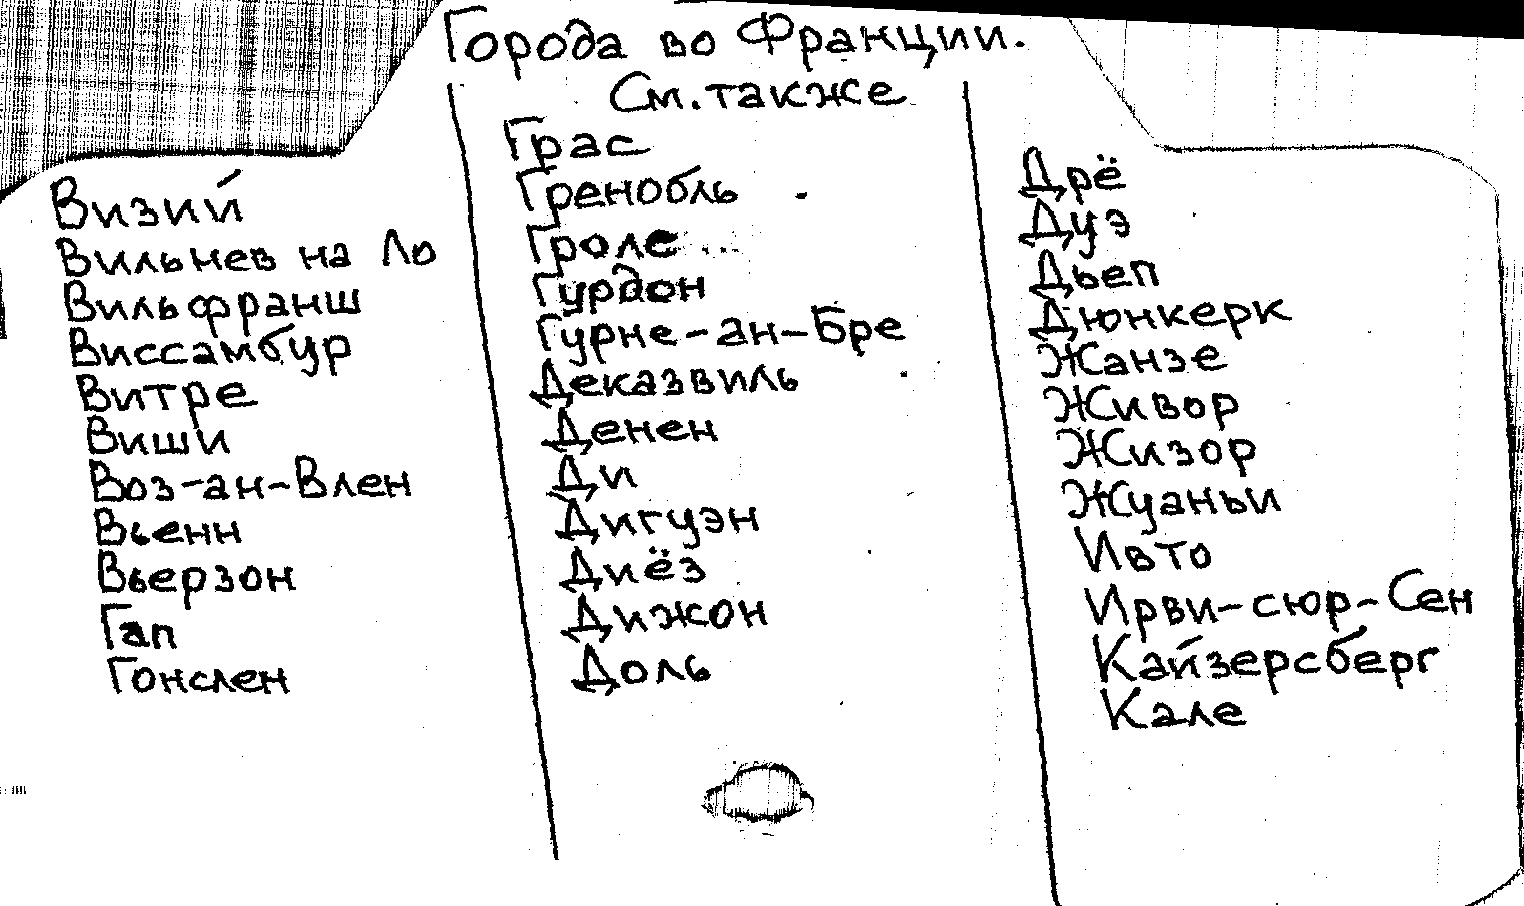 Города во Франции.
См. также
Визий
Вильнев на Ло
Вильфранш
Виссамбур
Витре
Виши
Воз-ан-Влен
Вьенн
Вьерзон
Гап
Гонслен
Грас
Гренобль
Гроле
Гурдон
Гурне-ан-Бре
Деказвиль
Денен
Ди
Дигуэн
Диёз
Дижон
Доль
Дрё
Дуэ
Дьеп
Дюнкерк
Жанзе
Живор
Жизор
Жуаньи
Ивто
Ирви-сюр-Сен
Кайзерсберг
Кале